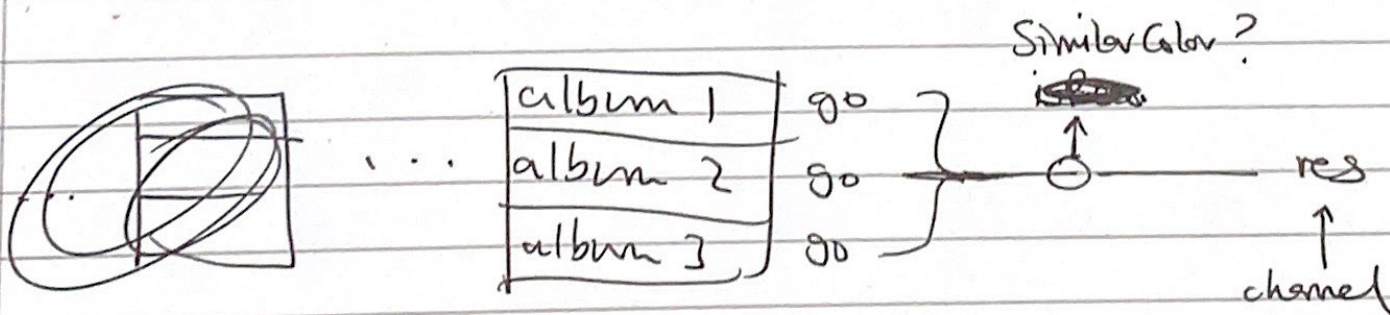 Similar Color?
album 1 go
... album 2 go res
album 3 go
channel